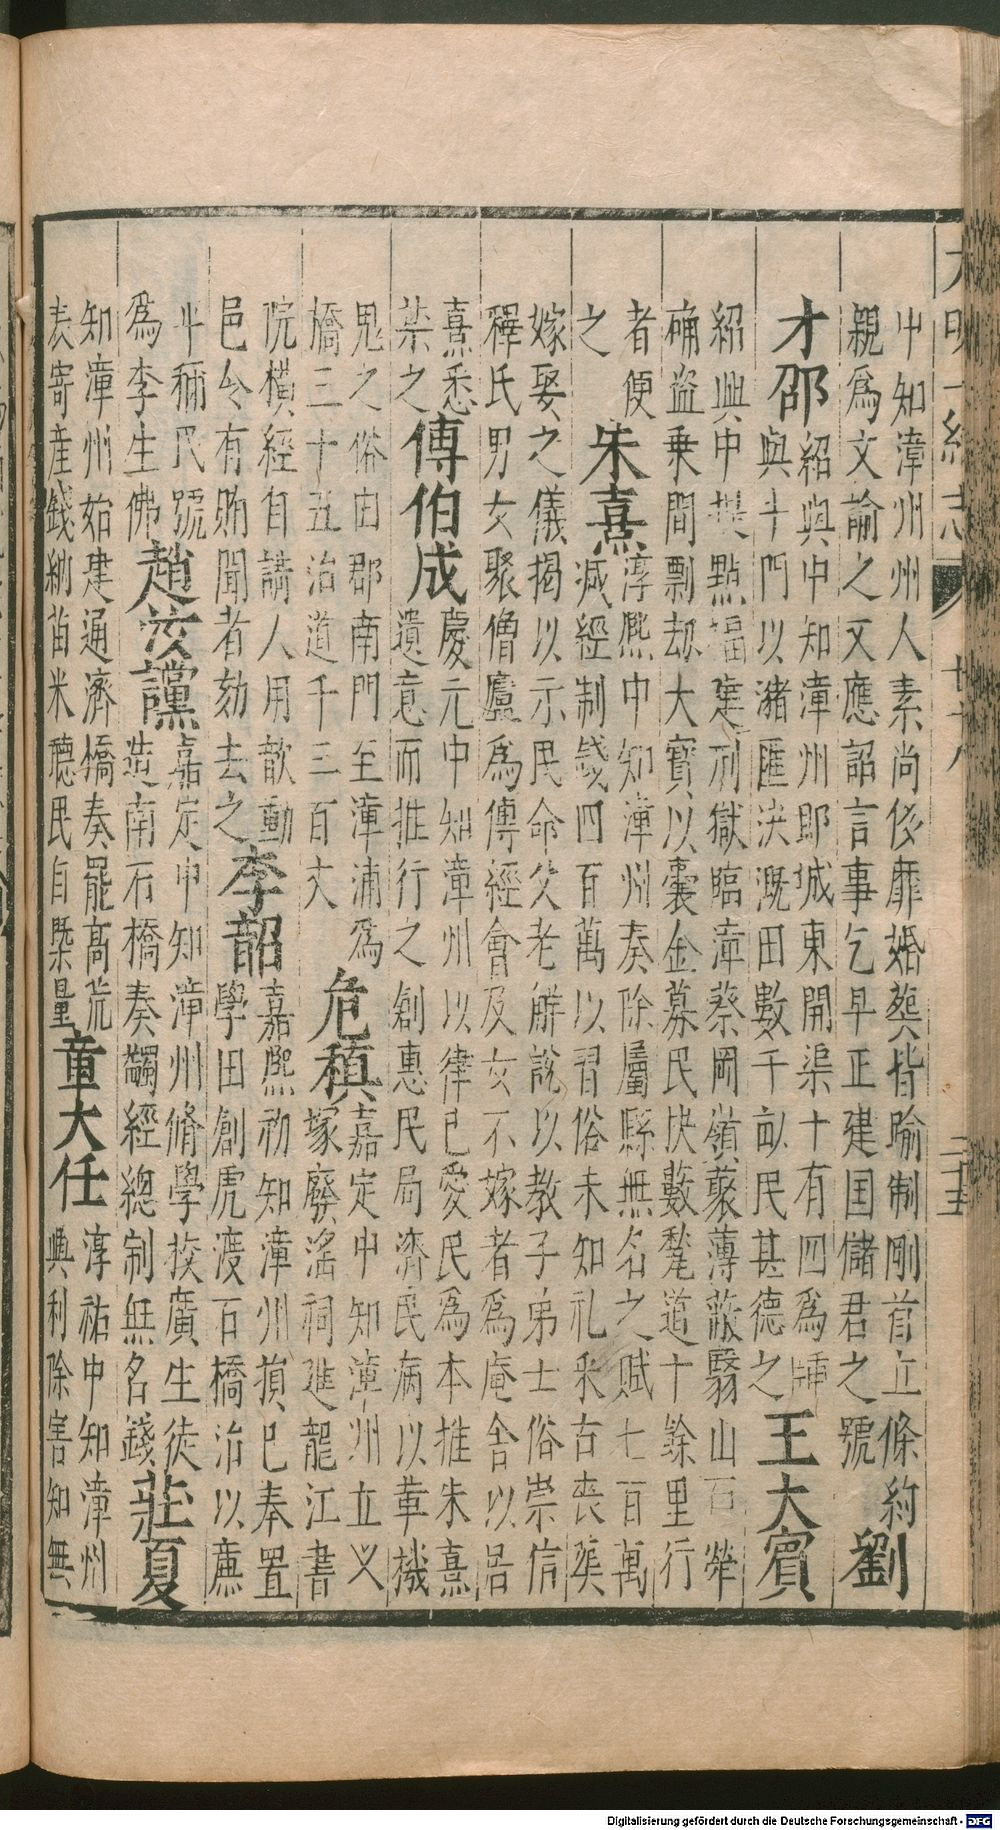 大明一統志
中知漳州州人素尚侈靡婚葬皆踰制剛首立條約
親為文諭之又應詔言事乞早正建国儲君之號
劉
才邵
紹興中知漳州即城東開渠十有四為牐
與斗門以瀦匯決溉田數千畝民甚德之
王大寶
紹興中提點福建刑獄臨漳蔡岡嶺叢薄蔽翳山石犖
确盗乗間剽刼大寶以囊金募民抉藪鑿道十餘里行
者便
之
朱熹
淳熙中知漳州奏除屬縣無名之賦七百萬
减經制錢四百萬以習俗未知礼釆古丧葬
嫁娶之儀揭以示民命父老解說以教子弟士俗崇信
釋氏男女聚僧廬為傳經會及女不嫁者為庵舍以居
熹悉
禁之
傅伯成
慶元中知漳州以律己愛民為本推朱熹
遺意而推行之創惠民局濟民病以革機
鬼之俗由郡南門至漳浦為
橋三十五治道千三百丈
危稹
嘉定中知漳州立义
塚廢淫祠進龍江書
院横經自講人用歆動
邑令有賄聞者劾去之
李韶
嘉熙初知漳州損己奉置
學田創虎渡石橋治以亷
平稱民號
為李生佛
趙汝讜
嘉定中知漳州脩學挍廣生徒
造南石橋奏蠲經總制無名錢
莊夏
知漳州始建通濟橋奏罷高荒
表寄産錢納苗米聽民自槩量
童大任
淳祐中知漳州
興利除害知無
Digitalisierung gefördert durch die Deutsche Forschungsgemeinschaft - DFG